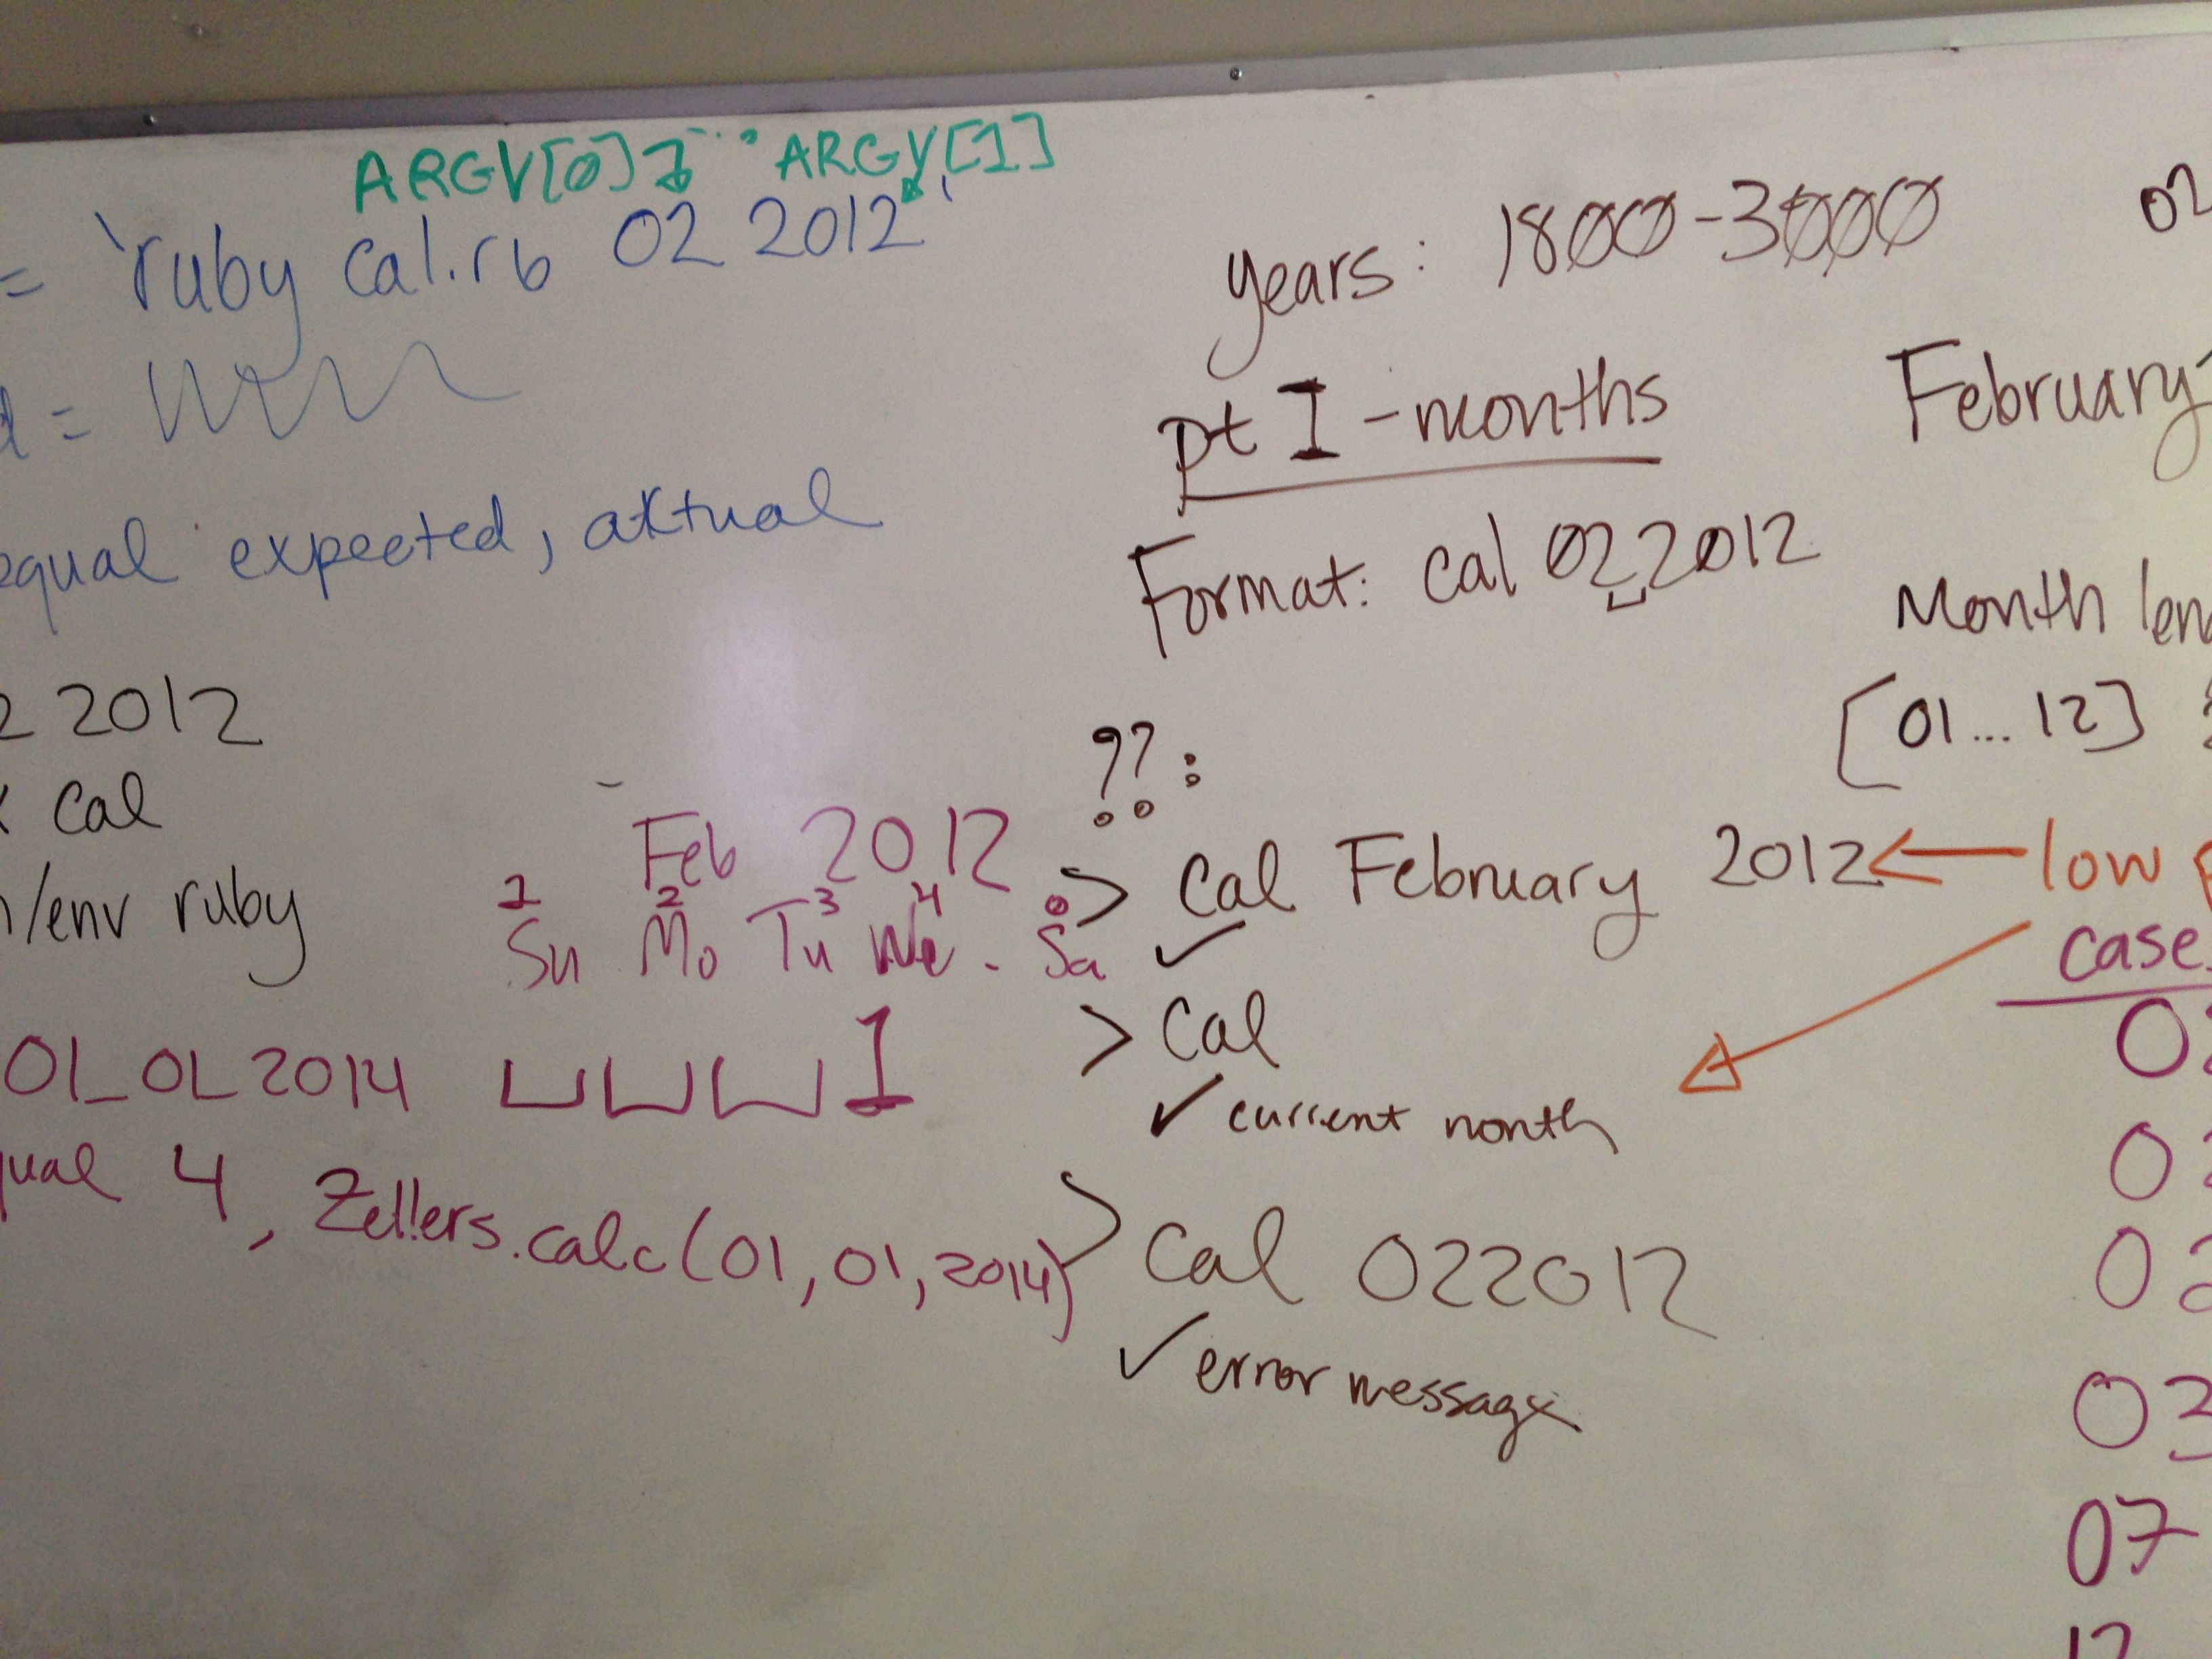 ARGV[0] ARGV[1]
= `ruby cal.rb 02 2012`
d =
equal expected, aktual
2 2012
cal
n/env ruby
Feb 2012
1 2 3 4 0
Su Mo Tu We - Sa
1
01_01_2014
qual 4, Zellers.calc(01,01,2014)
years: 1800-3000
pt I - months
Format: cal 02 2012
??:
> cal February 2012 ← low
✓
> cal
✓ current month
> cal 022012
✓ error message
02
February
Month len
[01...12]
case
02
02
02
03
07
12